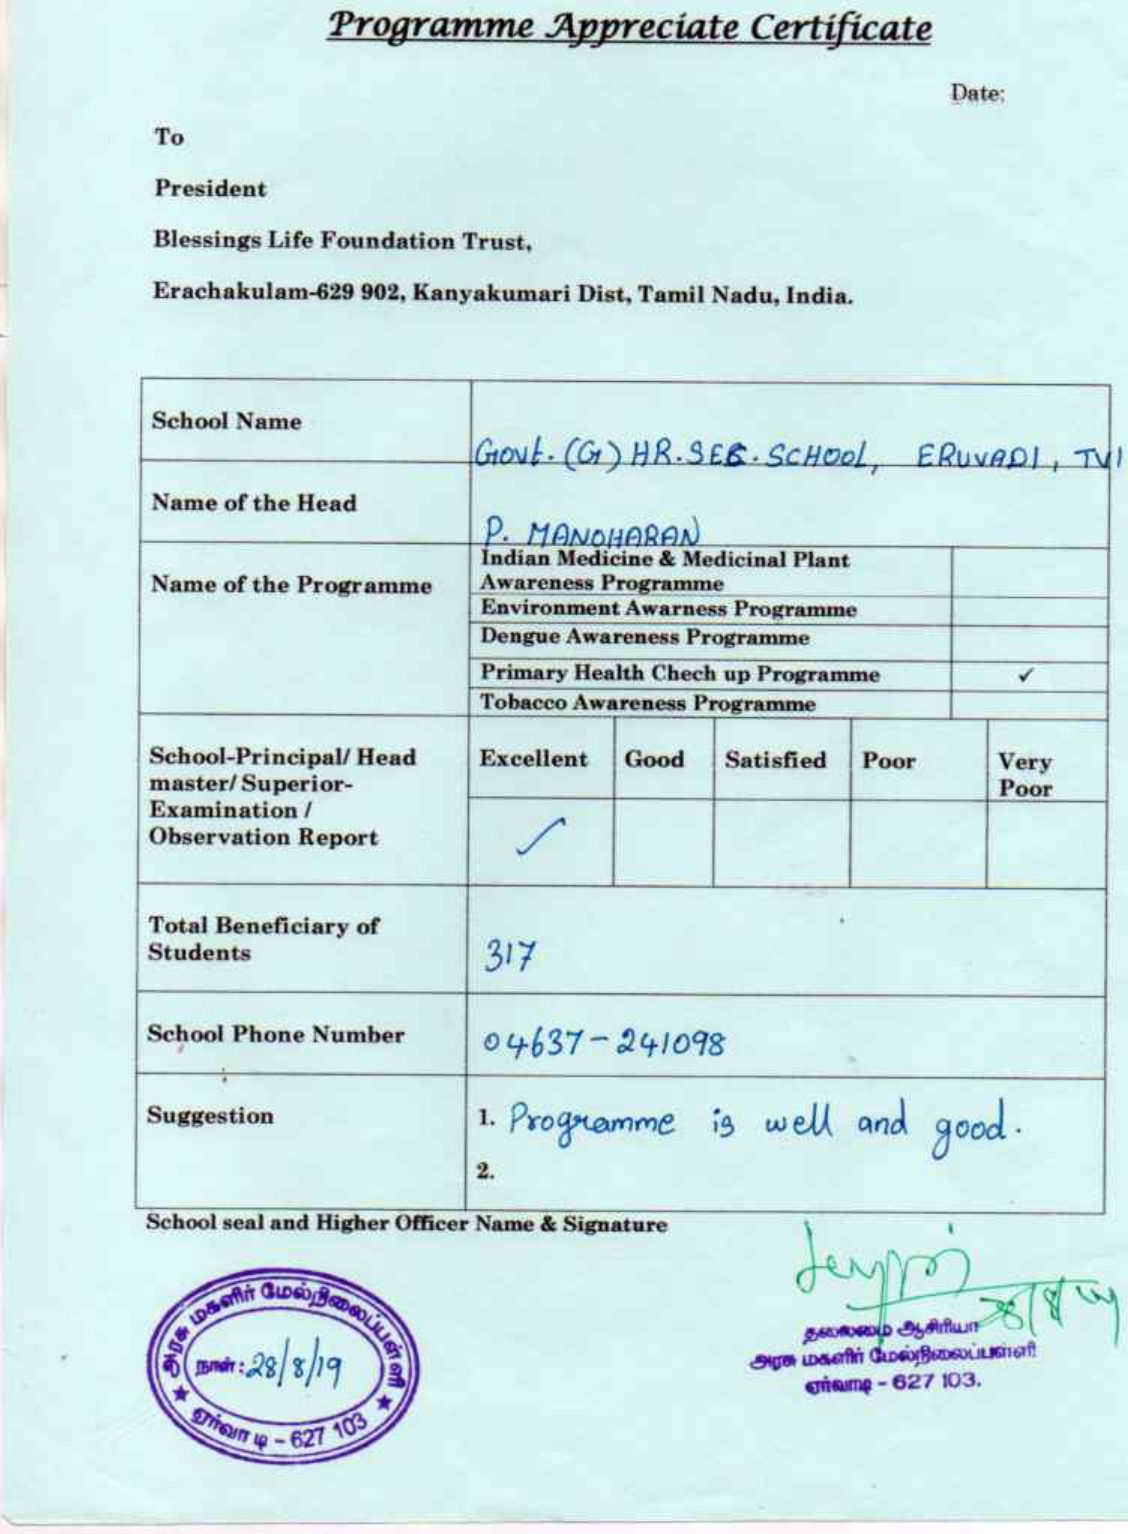 Programme Appreciate Certificate
Date:
To
President
Blessings Life Foundation Trust,
Erachakulam-629 902, Kanyakumari Dist, Tamil Nadu, India.
School Name
Govt. (G) HR. SEC. SCHOOL, ERUVADI, TVI
Name of the Head
P. MANOHARAN
Name of the Programme
Indian Medicine & Medicinal Plant
Awareness Programme
Environment Awarness Programme
Dengue Awareness Programme
Primary Health Chech up Programme ✓
Tobacco Awareness Programme
School-Principal/ Head
master/ Superior-
Examination /
Observation Report
Excellent Good Satisfied Poor Very
Poor
✓
Total Beneficiary of
Students
317
School Phone Number
04637-241098
Suggestion
1. Programme is well and good.
2.
School seal and Higher Officer Name & Signature
அரசு மகளிர் மேல்நிலைப்பள்ளி
நாள்: 28/8/19
★ ஏர்வாடி - 627 103 ★
28/8/19
தலைமை ஆசிரியர்
அரசு மகளிர் மேல்நிலைப்பள்ளி
ஏர்வாடி - 627 103.